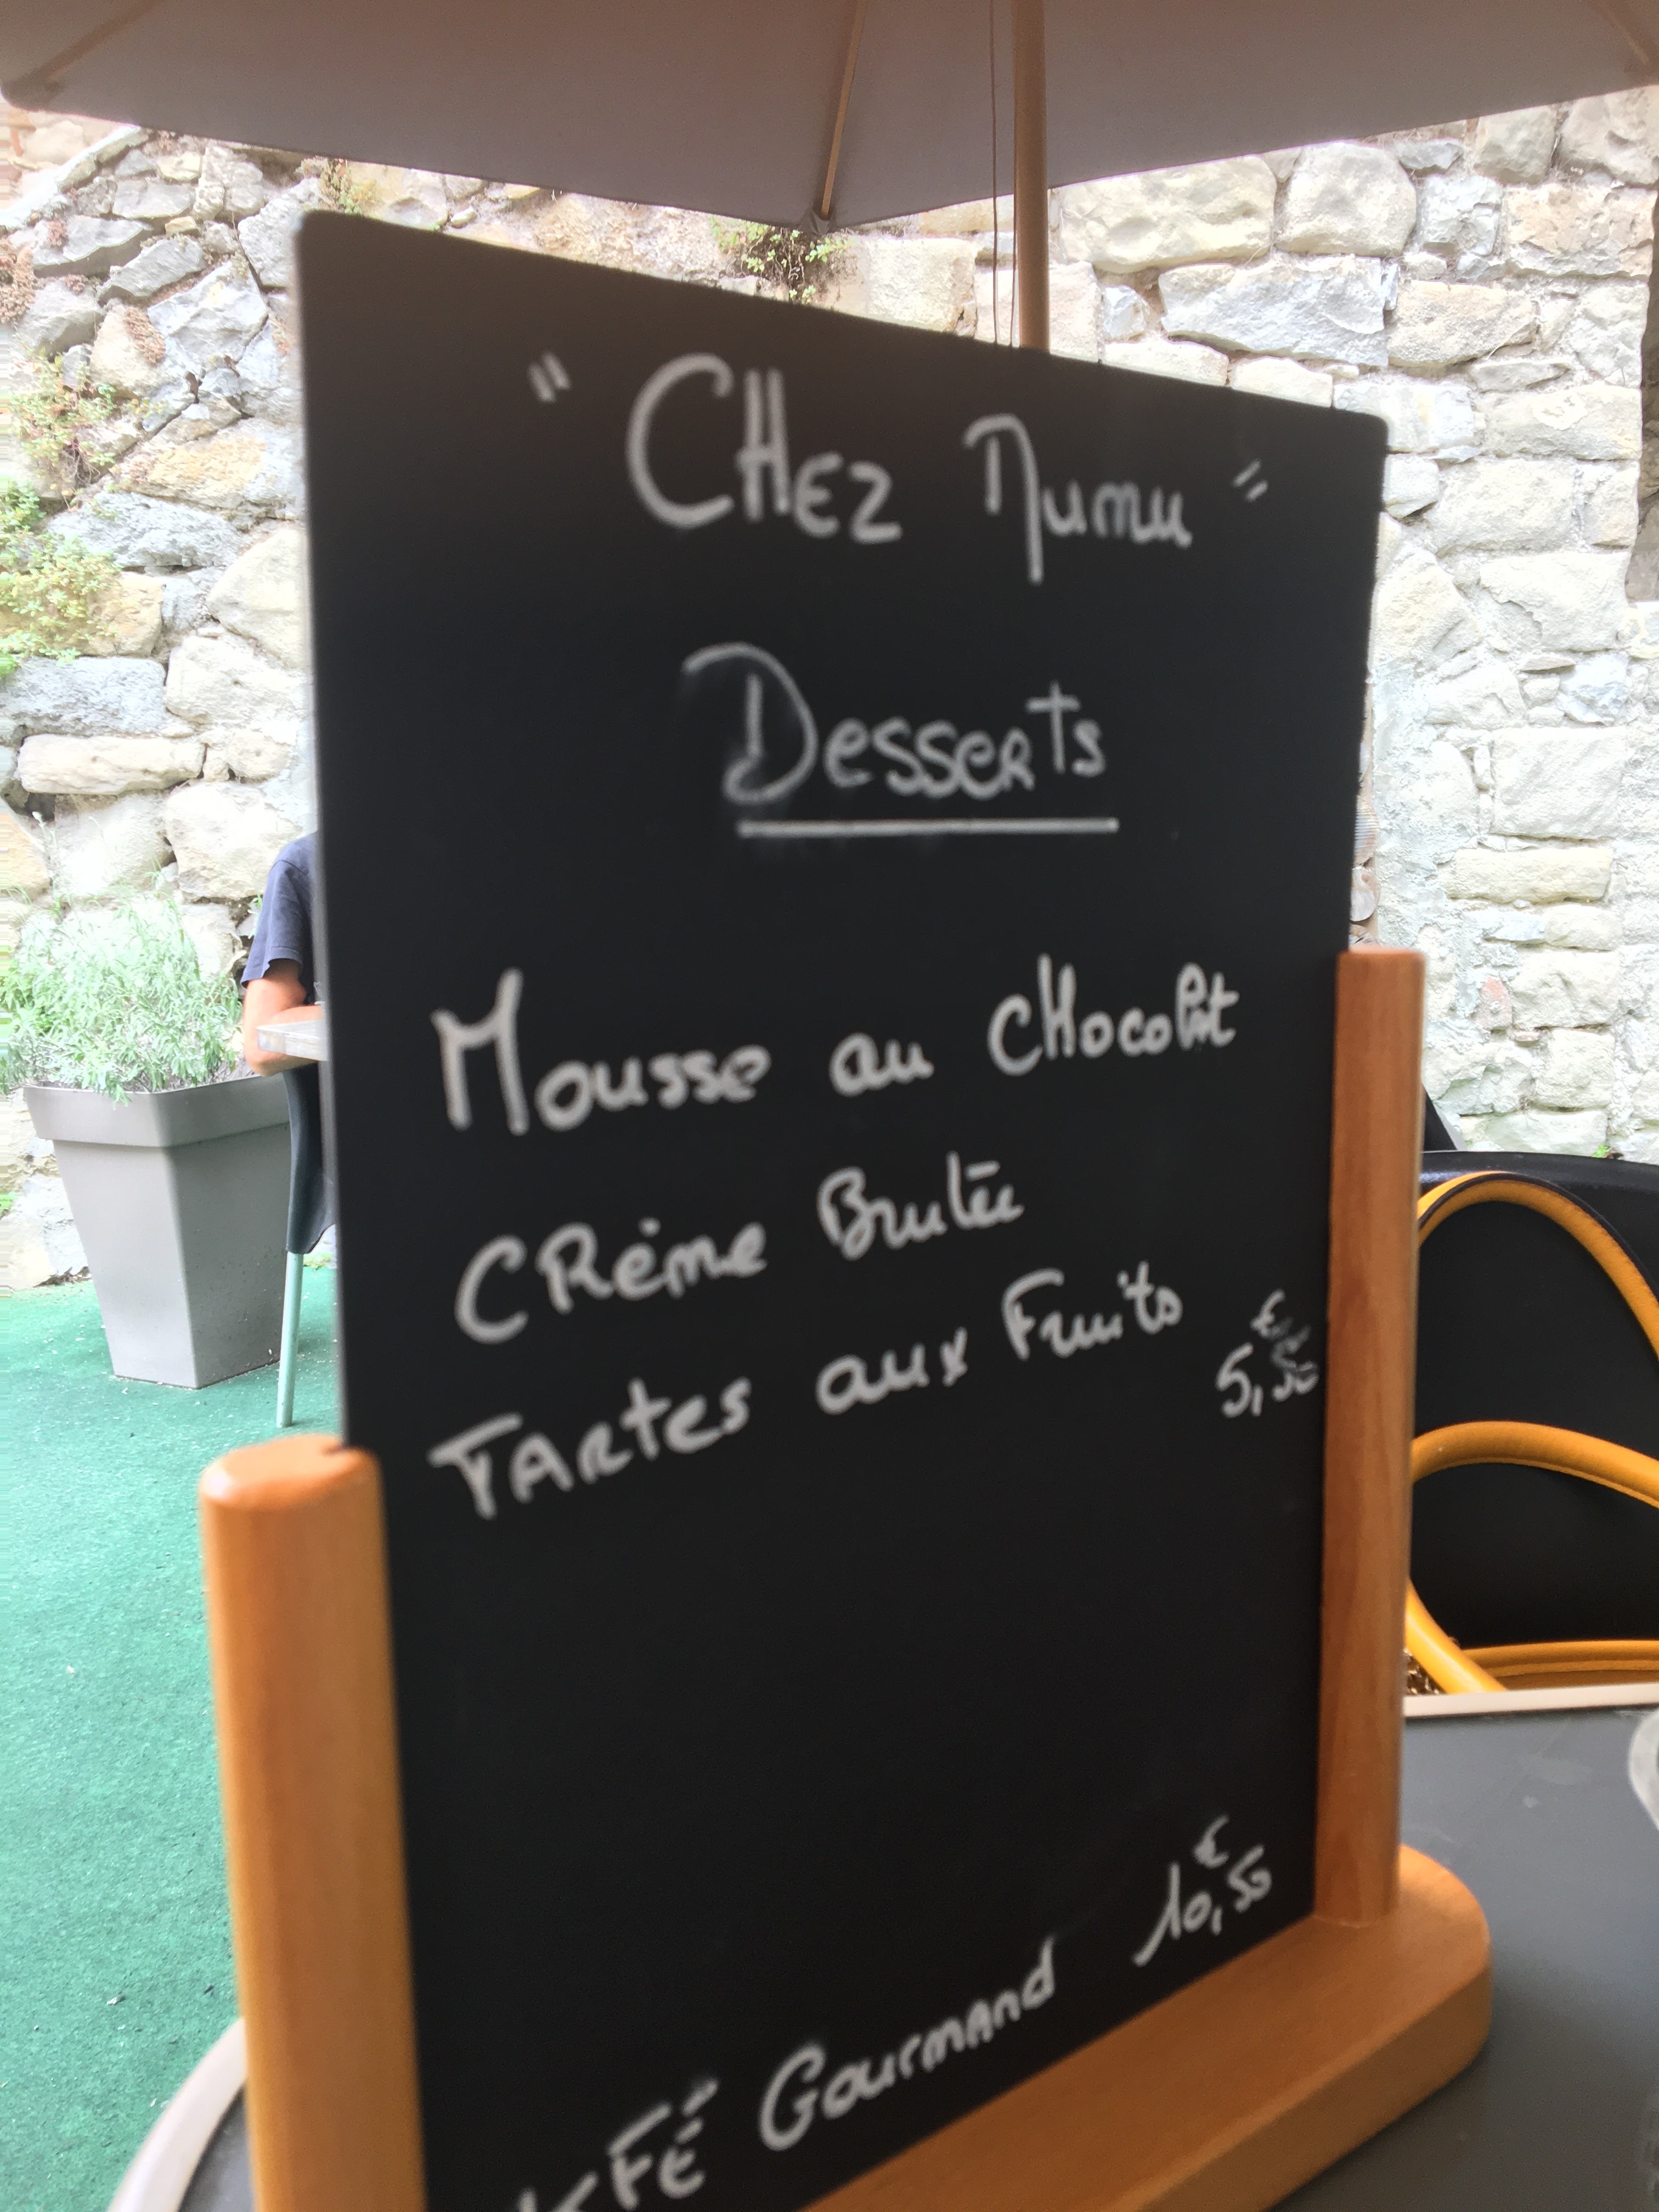 " CHEZ Numu "
Desserts
Mousse au CHocolAt
CRème Brulée
TARtes aux Fruits
5,50 €
Gourmand 10,50 €